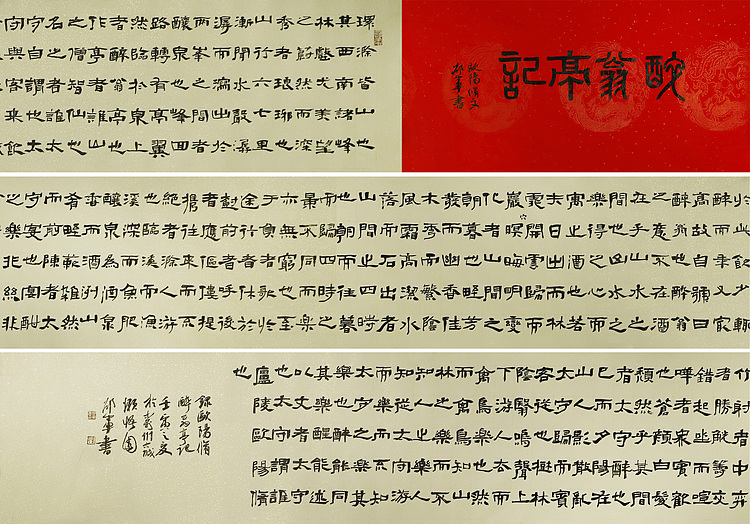 醉翁亭記
歐陽脩文
環滁皆山也
其西南諸峰
林壑尤美望
之蔚然而深
秀者琅琊也
山行六七里
漸聞水聲潺
潺而瀉出於
兩峰之間者
釀泉也峰回
路轉有亭翼
然臨於泉上
者醉翁亭也
作亭者誰山
之僧智仙也
名之者誰太
守自謂也太
守與客來飲
於此飲少輒
醉而年又最
高故自號曰
醉翁也醉翁
之意不在酒
在乎山水之
間也山水之
樂得之心而
寓之酒也若
夫日出而林
霏開雲歸而
巖穴暝晦明變
化者山間之
朝暮也野芳
發而幽香佳
木秀而繁陰
風霜高潔水
落而石出者
山間之四時
也朝而往暮
而歸四時之
景不同而樂
亦無窮也至
于負者歌於
塗行者休於
樹前者呼後
者應傴僂提
攜往來而不
絕者滁人游
也臨溪而漁
溪深而魚肥
釀泉為酒泉
香而酒洌山
肴野蔌雜然
而前陳者太
守宴也宴酣
之樂非絲非
竹射者中弈
者勝觥籌交
錯起坐而喧
嘩者眾賓歡
也蒼顏白髮
頹然乎其間
者太守醉也
已而夕陽在
山人影散亂
太守歸而賓
客從也樹林
陰翳鳴聲上
下游人去而
禽鳥樂也然
而禽鳥知山
林之樂而不
知人之樂人
知從太守游
而樂而不知
太守之樂其
樂也醉能同
其樂醒能述
以文者太守
也太守謂誰
廬陵歐陽脩
也
錄歐陽脩
醉翁亭記
壬寅之夏
於青州城
軍書